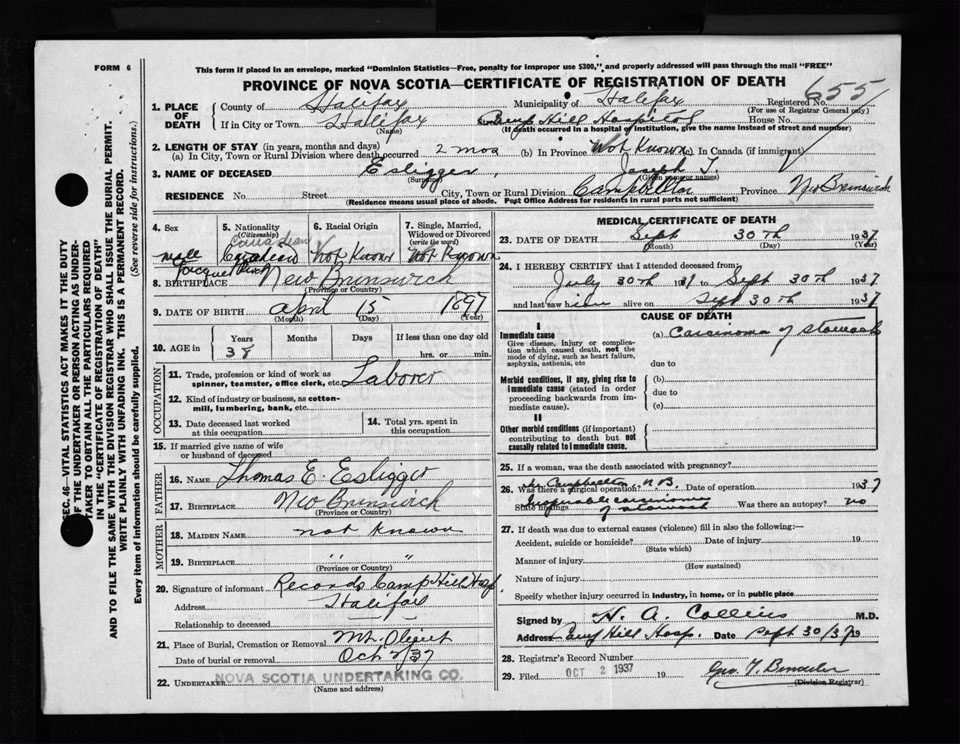 FORM 6
This form if placed in an envelope, marked "Dominion Statistics—Free, penalty for improper use $300," and properly addressed will pass through the mail "FREE"
PROVINCE OF NOVA SCOTIA—CERTIFICATE OF REGISTRATION OF DEATH
655
1. PLACE OF DEATH
County of Halifax Municipality of Halifax Registered No.
(For use of Registrar General only)
If in City or Town Halifax Camp Hill Hospital House No.
(Name) (If death occurred in a hospital or institution, give the name instead of street and number)
2. LENGTH OF STAY (in years, months and days)
(a) In City, Town or Rural Division where death occurred 2 mos (b) In Province Not Known (c) In Canada (if immigrant)
3. NAME OF DECEASED Esligger, Joseph T.
(Surname) (Given name or names)
RESIDENCE No. Street City, Town or Rural Division Campbellton Province New Brunswick
(Residence means usual place of abode. Post Office Address for residents in rural parts not sufficient)
4. Sex
male
5. Nationality
(Citizenship)
Canadian
6. Racial Origin
Not Known
7. Single, Married, Widowed or Divorced
(write the word)
Not Known
Jacquet River
8. BIRTHPLACE New Brunswick
(Province or Country)
9. DATE OF BIRTH April 15 1897
(Month) (Day) (Year)
10. AGE in
Years Months Days If less than one day
38 hrs. or min.
OCCUPATION
11. Trade, profession or kind of work as spinner, teamster, office clerk, etc. Laborer
12. Kind of industry or business, as cotton-mill, lumbering, bank, etc.
13. Date deceased last worked at this occupation
14. Total yrs. spent in this occupation
15. If married give name of wife or husband of deceased
FATHER
16. NAME Thomas E. Esligger
17. BIRTHPLACE New Brunswick
(Province or Country)
MOTHER
18. MAIDEN NAME not known
19. BIRTHPLACE " "
(Province or Country)
20. Signature of informant Records Camp Hill Hosp.
Address Halifax
Relationship to deceased
21. Place of Burial, Cremation or Removal Mt. Olivet
Date of burial or removal Oct 2/37
22. UNDERTAKER NOVA SCOTIA UNDERTAKING CO.
(Name and address)
MEDICAL CERTIFICATE OF DEATH
23. DATE OF DEATH Sept 30th 1937
(Month) (Day) (Year)
24. I HEREBY CERTIFY that I attended deceased from:
July 30th 1937 to Sept 30th 1937
and last saw him alive on Sept 30th 1937
CAUSE OF DEATH
I
Immediate cause
Give disease, injury or complication which caused death, not the mode of dying, such as heart failure, asphyxia, asthenia, etc
(a) Carcinoma of stomach
due to
Morbid conditions, if any, giving rise to immediate cause (stated in order proceeding backwards from immediate cause).
(b)
due to
(c)
II
Other morbid conditions (if important) contributing to death but not causally related to immediate cause.
25. If a woman, was the death associated with pregnancy?
At Campbellton N.B.
26. Was there a surgical operation? Date of operation 1937
State findings Inoperable carcinoma of stomach Was there an autopsy? no
27. If death was due to external causes (violence) fill in also the following:—
Accident, suicide or homicide? Date of injury 19
(State which)
Manner of injury
(How sustained)
Nature of injury
Specify whether injury occurred in industry, in home, or in public place
Signed by H. A. Collins M.D.
Address Camp Hill Hosp. Date Sept 30/37 19
28. Registrar's Record Number
29. Filed OCT 2 1937 19
(Division Registrar)
SEC. 46—VITAL STATISTICS ACT MAKES IT THE DUTY
OF THE UNDERTAKER OR PERSON ACTING AS UNDERTAKER TO OBTAIN ALL THE PARTICULARS REQUIRED
IN THE "CERTIFICATE OF REGISTRATION OF DEATH"
AND TO FILE THE SAME WITH THE DIVISION REGISTRAR WHO SHALL ISSUE THE BURIAL PERMIT.
WRITE PLAINLY WITH UNFADING INK. THIS IS A PERMANENT RECORD.
Every item of information should be carefully supplied. (See reverse side for instructions.)